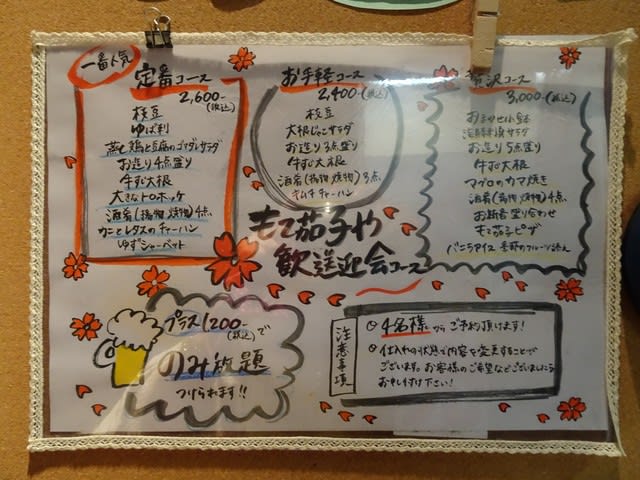 一番人気
定番コース
2,600-(税込)
枝豆
ゆば刺
蒸し鶏と豆腐のゴマダレサラダ
お造り4点盛り
牛すじ大根
大きなトロホッケ
酒肴(揚物 焼物)4点
カニとレタスのチャーハン
ゆずシャーベット
お手軽コース
2,400-(税込)
枝豆
大根じゃこサラダ
お造り3点盛り
牛すじ大根
酒肴(揚物 焼物)3点
キムチチャーハン
贅沢コース
3,000-(税込)
おまかせ小鉢
サラダ
お造り5点盛り
牛すじ大根
マグロのカマ焼き
酒肴(揚物 焼物)4点
お新香盛り合わせ
もて茄子ピザ
バニラアイス 季節のフルーツ添え
もて茄子や
歓送迎会コース
プラス1200-(税込)で
のみ放題
つけられます!!
注意事項
4名様からご予約頂けます!
仕入れの状態で内容を変更することで
ございます。お客様のご希望などございましたら
お申し付け下さい!